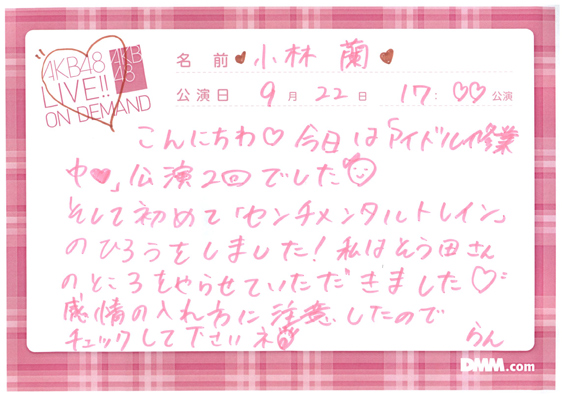 AKB48
LIVE!!
ON DEMAND
AKB
48
名 前 ♥小林 蘭♥
公演日 9月 22日 17:♡♡公演
こんにちわ♡今日は「アイドル修業
中♥」公演2回でした
そして初めて「センチメンタルトレイン」
のひろうをしました!私はそう田さん
のところをやらせていただきました♡
感情の入れ方に注意したので
チェックして下さいネ
らん
DMM.com